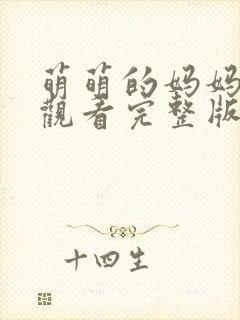 萌萌的妈妈
觀看完整版
十四生